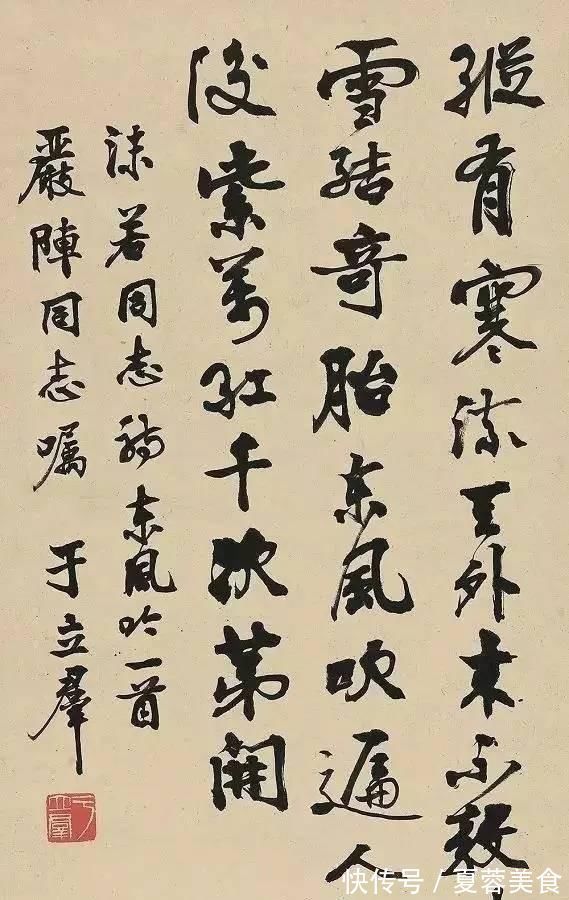 縱有寒流天外來不教
雪結奇胎東風吹遍人
後紫萬紅千次第開
沫若同志詩東風吟一首
嚴陣同志囑 于立羣
于立羣
快传号 / 夏蓉美食